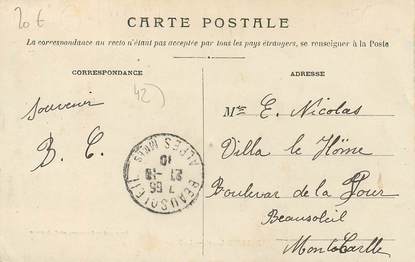 20 €
CARTE POSTALE
La correspondance au recto n'étant pas acceptée par tous les pays étrangers, se renseigner à la Poste
CORRESPONDANCE
ADRESSE
42)
Souvenir
B. C.
Mlle E. Nicolas
Villa le Höme
Boulevar de la Tour
Beausoleil
MonteCarlle
BEAUSOLEIL
ALPES MMES